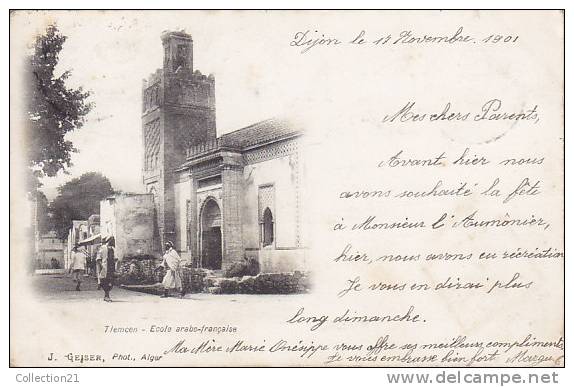 Dijon le 17 Novembre. 1901
Mes chers Parents,
Avant hier nous
avons souhaité la fête
à Monsieur l'Aumônier,
hier, nous avons eu récréation
Je vous en dirai plus
long dimanche.
Tlemcen - Ecole arabe-française
J. GEISER, Phot., Alger
Ma Mère Marie Onésippe vous offre ses meilleurs compliments
Je vous embrasse bien fort
© Collection21
© DELCAMPE.NET
Collection21